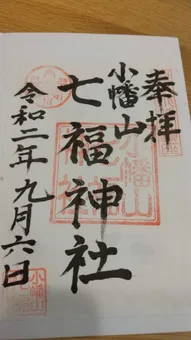 奉拝
小幡山
七福神社
令和二年九月六日
小幡山